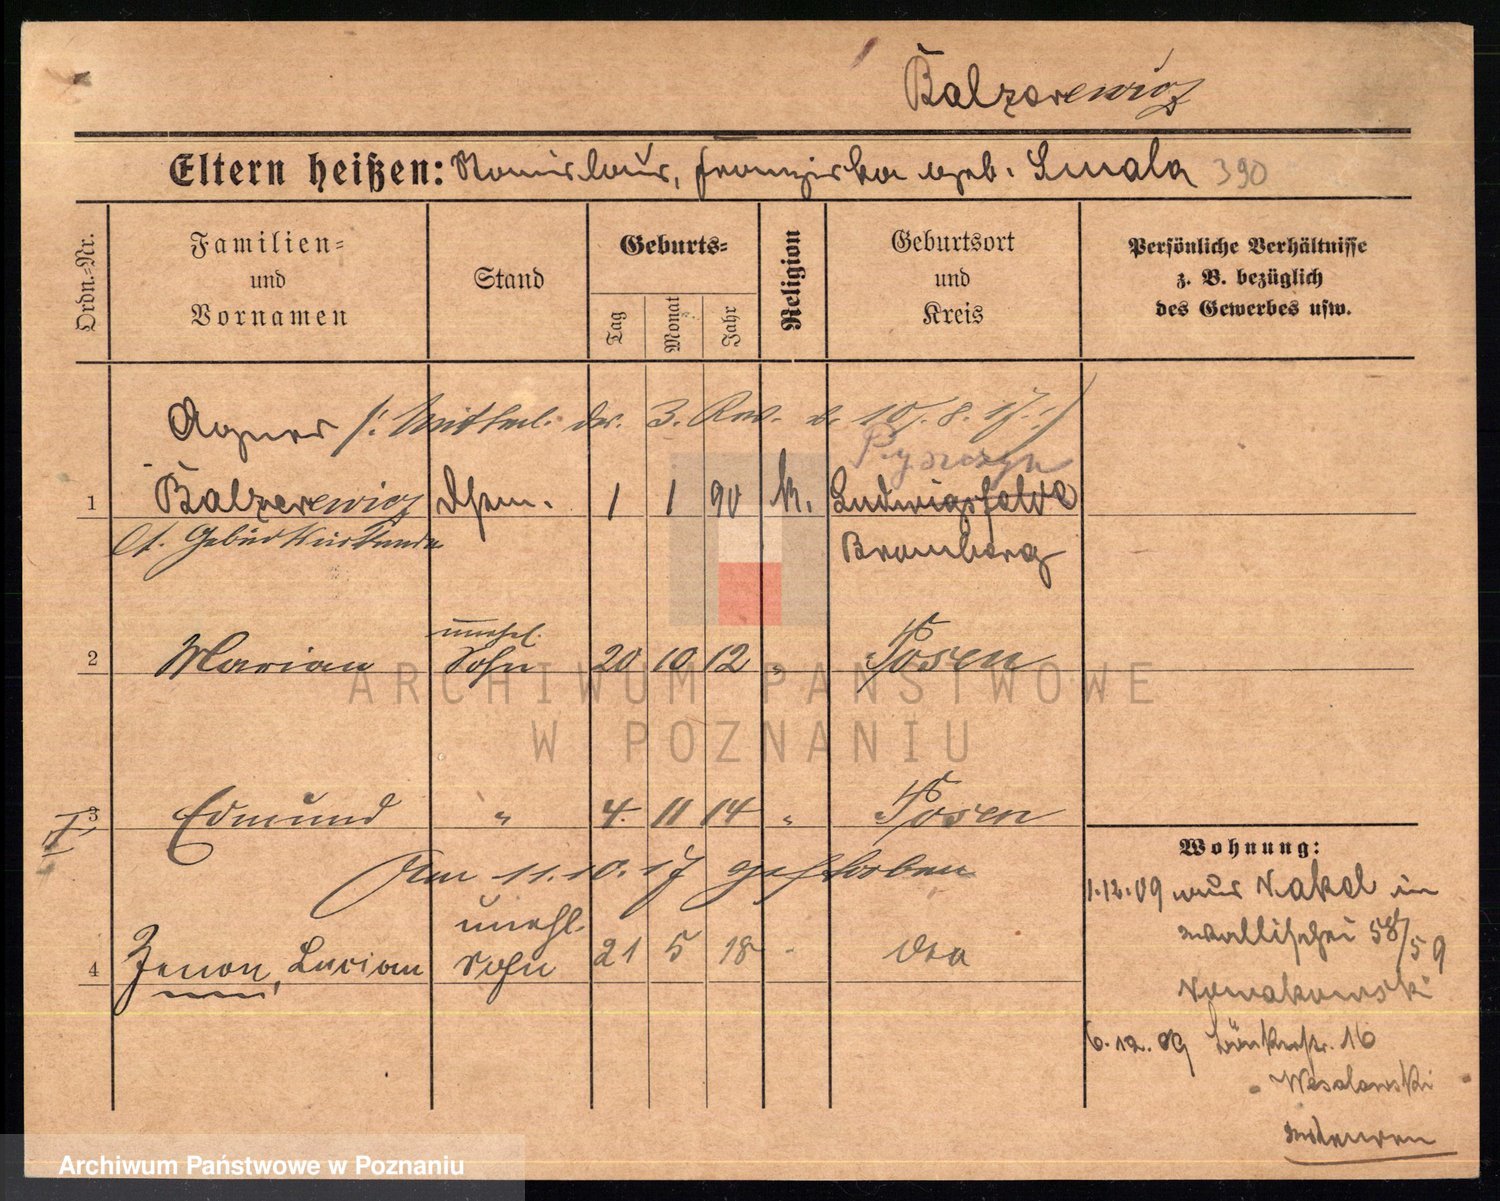 Balzerewicz
Eltern heißen: Stanislaus, Franziska geb. Smala 390
Ordn.-Nr.
Familien- und Vornamen
Stand
Geburts-
Tag
Monat
Jahr
Religion
Geburtsort und Kreis
Persönliche Verhältnisse z. B. bezüglich des Gewerbes usw.
Agnes /: Mitteil. des 3. Rev. v. 10/8.17 :/
1 Balzerewicz 1 1 90 k. Ludwigsfelde
lt. Geburtsurkunde Bromberg
unehel.
2 Marian Sohn 20 10 12 " Posen
3 Edmund " 4. 11 14 " Posen
Am 11.10.17 gestorben
unehl.
4 Zenon, Lucian Sohn 21 5 18
Wohnung:
1.12.09 aus Nakel in
Wallischei 58/59
Nowakowski
6.12.09 16
Wesolowski
ARCHIWUM PAŃSTWOWE
W POZNANIU
Archiwum Państwowe w Poznaniu